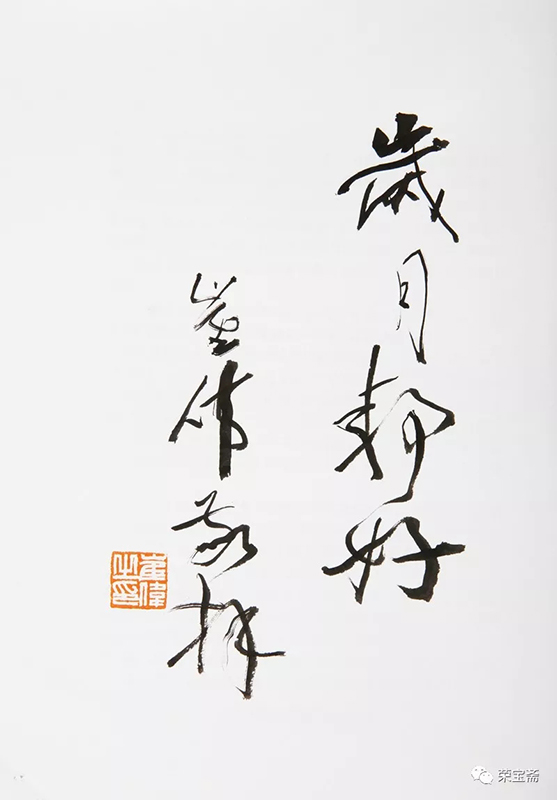 歲月静好
崔伟敬拜
崔偉之印
荣宝斋